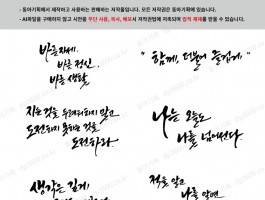 - 동아기획에서 제작하고 사용하는 판매하는 저작물입니다. 모든 저작권은 동아기획에 있습니다.
- AI파일을 구매하지 않고 시안을 무단 사용, 복사, 배포시 저작권법에 저촉되며 법적 제재를 받을 수 있습니다.
바른자세,
바른 정신,
바른 생활
" 함께, 더불어 즐겁게. "
지는 것을 두려워하지 말고
도전하지 못하는 것을
도전하라.
나는 오늘도
나를 넘어선다.
생각은 깊게,
적을 알고
나를 알면